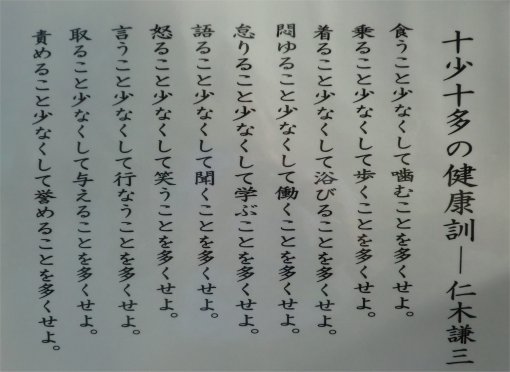 十少十多の健康訓―仁木謙三
食うこと少なくして噛むことを多くせよ。
乗ること少なくして歩くことを多くせよ。
着ること少なくして浴びることを多くせよ。
悶ゆること少なくして働くことを多くせよ。
怠りること少なくして学ぶことを多くせよ。
語ること少なくして聞くことを多くせよ。
怒ること少なくして笑うことを多くせよ。
言うこと少なくして行なうことを多くせよ。
取ること少なくして与えることを多くせよ。
責めること少なくして誉めることを多くせよ。